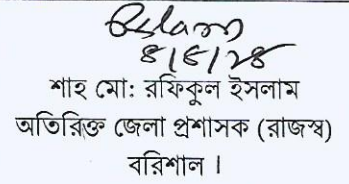 ৪/৫/২৪
শাহ মো: রফিকুল ইসলাম
অতিরিক্ত জেলা প্রশাসক (রাজস্ব)
বরিশাল ।